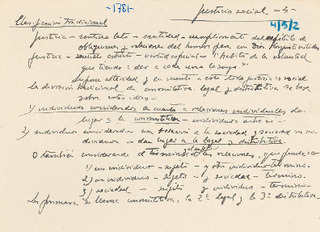 -1781-
justicia social -3-
4/5/2
justicia - sentido lato - santidad - cumplimiento del
obligaciones y relaciones del hombre para con Dios
justicia - sentido estricto - virtud especial - "hábito de la voluntad
que tiende: dar a cada uno lo suyo"
Supone alteridad y en cuanto a esto toda justicia es social
La división tradicional de conmutativa legal y distributiva se basa
sobre estas ideas
1) individuos considerados en cuanto a relaciones individuales dan
lugar a la conmutativa - individuos entre sí -
2) individuos considerados en relación a la sociedad y sociedad a in-
dividuos - dan lugar a la legal y distributiva
O también considerando el término de las relaciones, que puede ser
1) un individuo - sujeto - y otro individuo término
2) un individuo - sujeto - y sociedad - término.
3) sociedad - sujeto y individuo - término -
La primera se llama conmutativa, la 2ª legal y la 3ª distributiva.